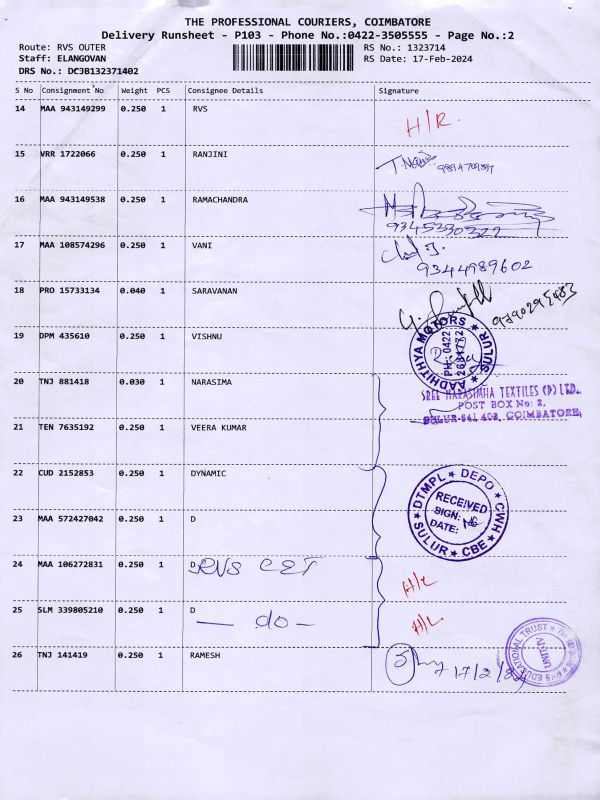 THE PROFESSIONAL COURIERS, COIMBATORE
Delivery Runsheet - P103 - Phone No.:0422-3505555 - Page No.:2
Route: RVS OUTER
RS No.: 1323714
Staff: ELANGOVAN
RS Date: 17-Feb-2024
DRS No.: DCJB132371402
S No Consignment No Weight PCS Consignee Details Signature
14 MAA 943149299 0.250 1 RVS H/R.
15 VRR 1722066 0.250 1 RANJINI
16 MAA 943149538 0.250 1 RAMACHANDRA
9345330322
17 MAA 108574296 0.250 1 VANI
9344989602
18 PRO 15733134 0.040 1 SARAVANAN 9790295483
19 DPM 435610 0.250 1 VISHNU
AADHITHYA MOTORS ★ SULUR ★
PH: 0422
20 TNJ 881418 0.030 1 NARASIMA
SREE NARASIMHA TEXTILES (P) LTD.
POST BOX No: 2,
SULUR-641 402, COIMBATORE,
21 TEN 7635192 0.250 1 VEERA KUMAR
22 CUD 2152853 0.250 1 DYNAMIC
DTMPL ★ DEPO ★ CWH
RECEIVED
SIGN:
DATE:
★ SULUR ★ CBE ★
23 MAA 572427042 0.250 1 D
24 MAA 106272831 0.250 1 D RVS CET H/L
25 SLM 339805210 0.250 1 D — do — H/L
26 TNJ 141419 0.250 1 RAMESH
17/2/24
RVS EDUCATIONAL TRUST ★
UNIT-IV